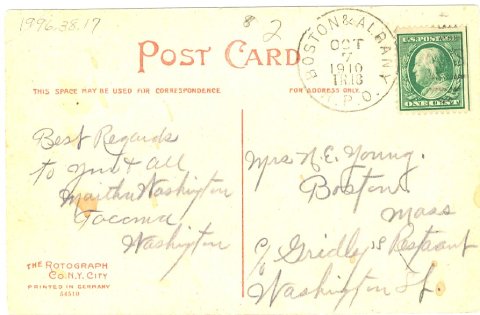 1996.38.17
8 2
POST CARD
BOSTON & ALBANY
OCT
7
1910
R.P.O.
U.S. POSTAGE
ONE CENT
THIS SPACE MAY BE USED FOR CORRESPONDENCE
FOR ADDRESS ONLY.
Best Regards
to you & all
Martha Washington
Tacoma
Washington
Mrs H. E. Young.
Boston
Mass
c/o Gridley's
Washington St.
THE ROTOGRAPH
CO. N.Y. CITY
PRINTED IN GERMANY